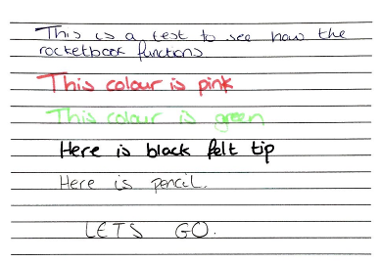 This is a test to see how the
rocketbook functions
This colour is pink
This colour is green
Here is black felt tip
Here is pencil.
LETS GO.